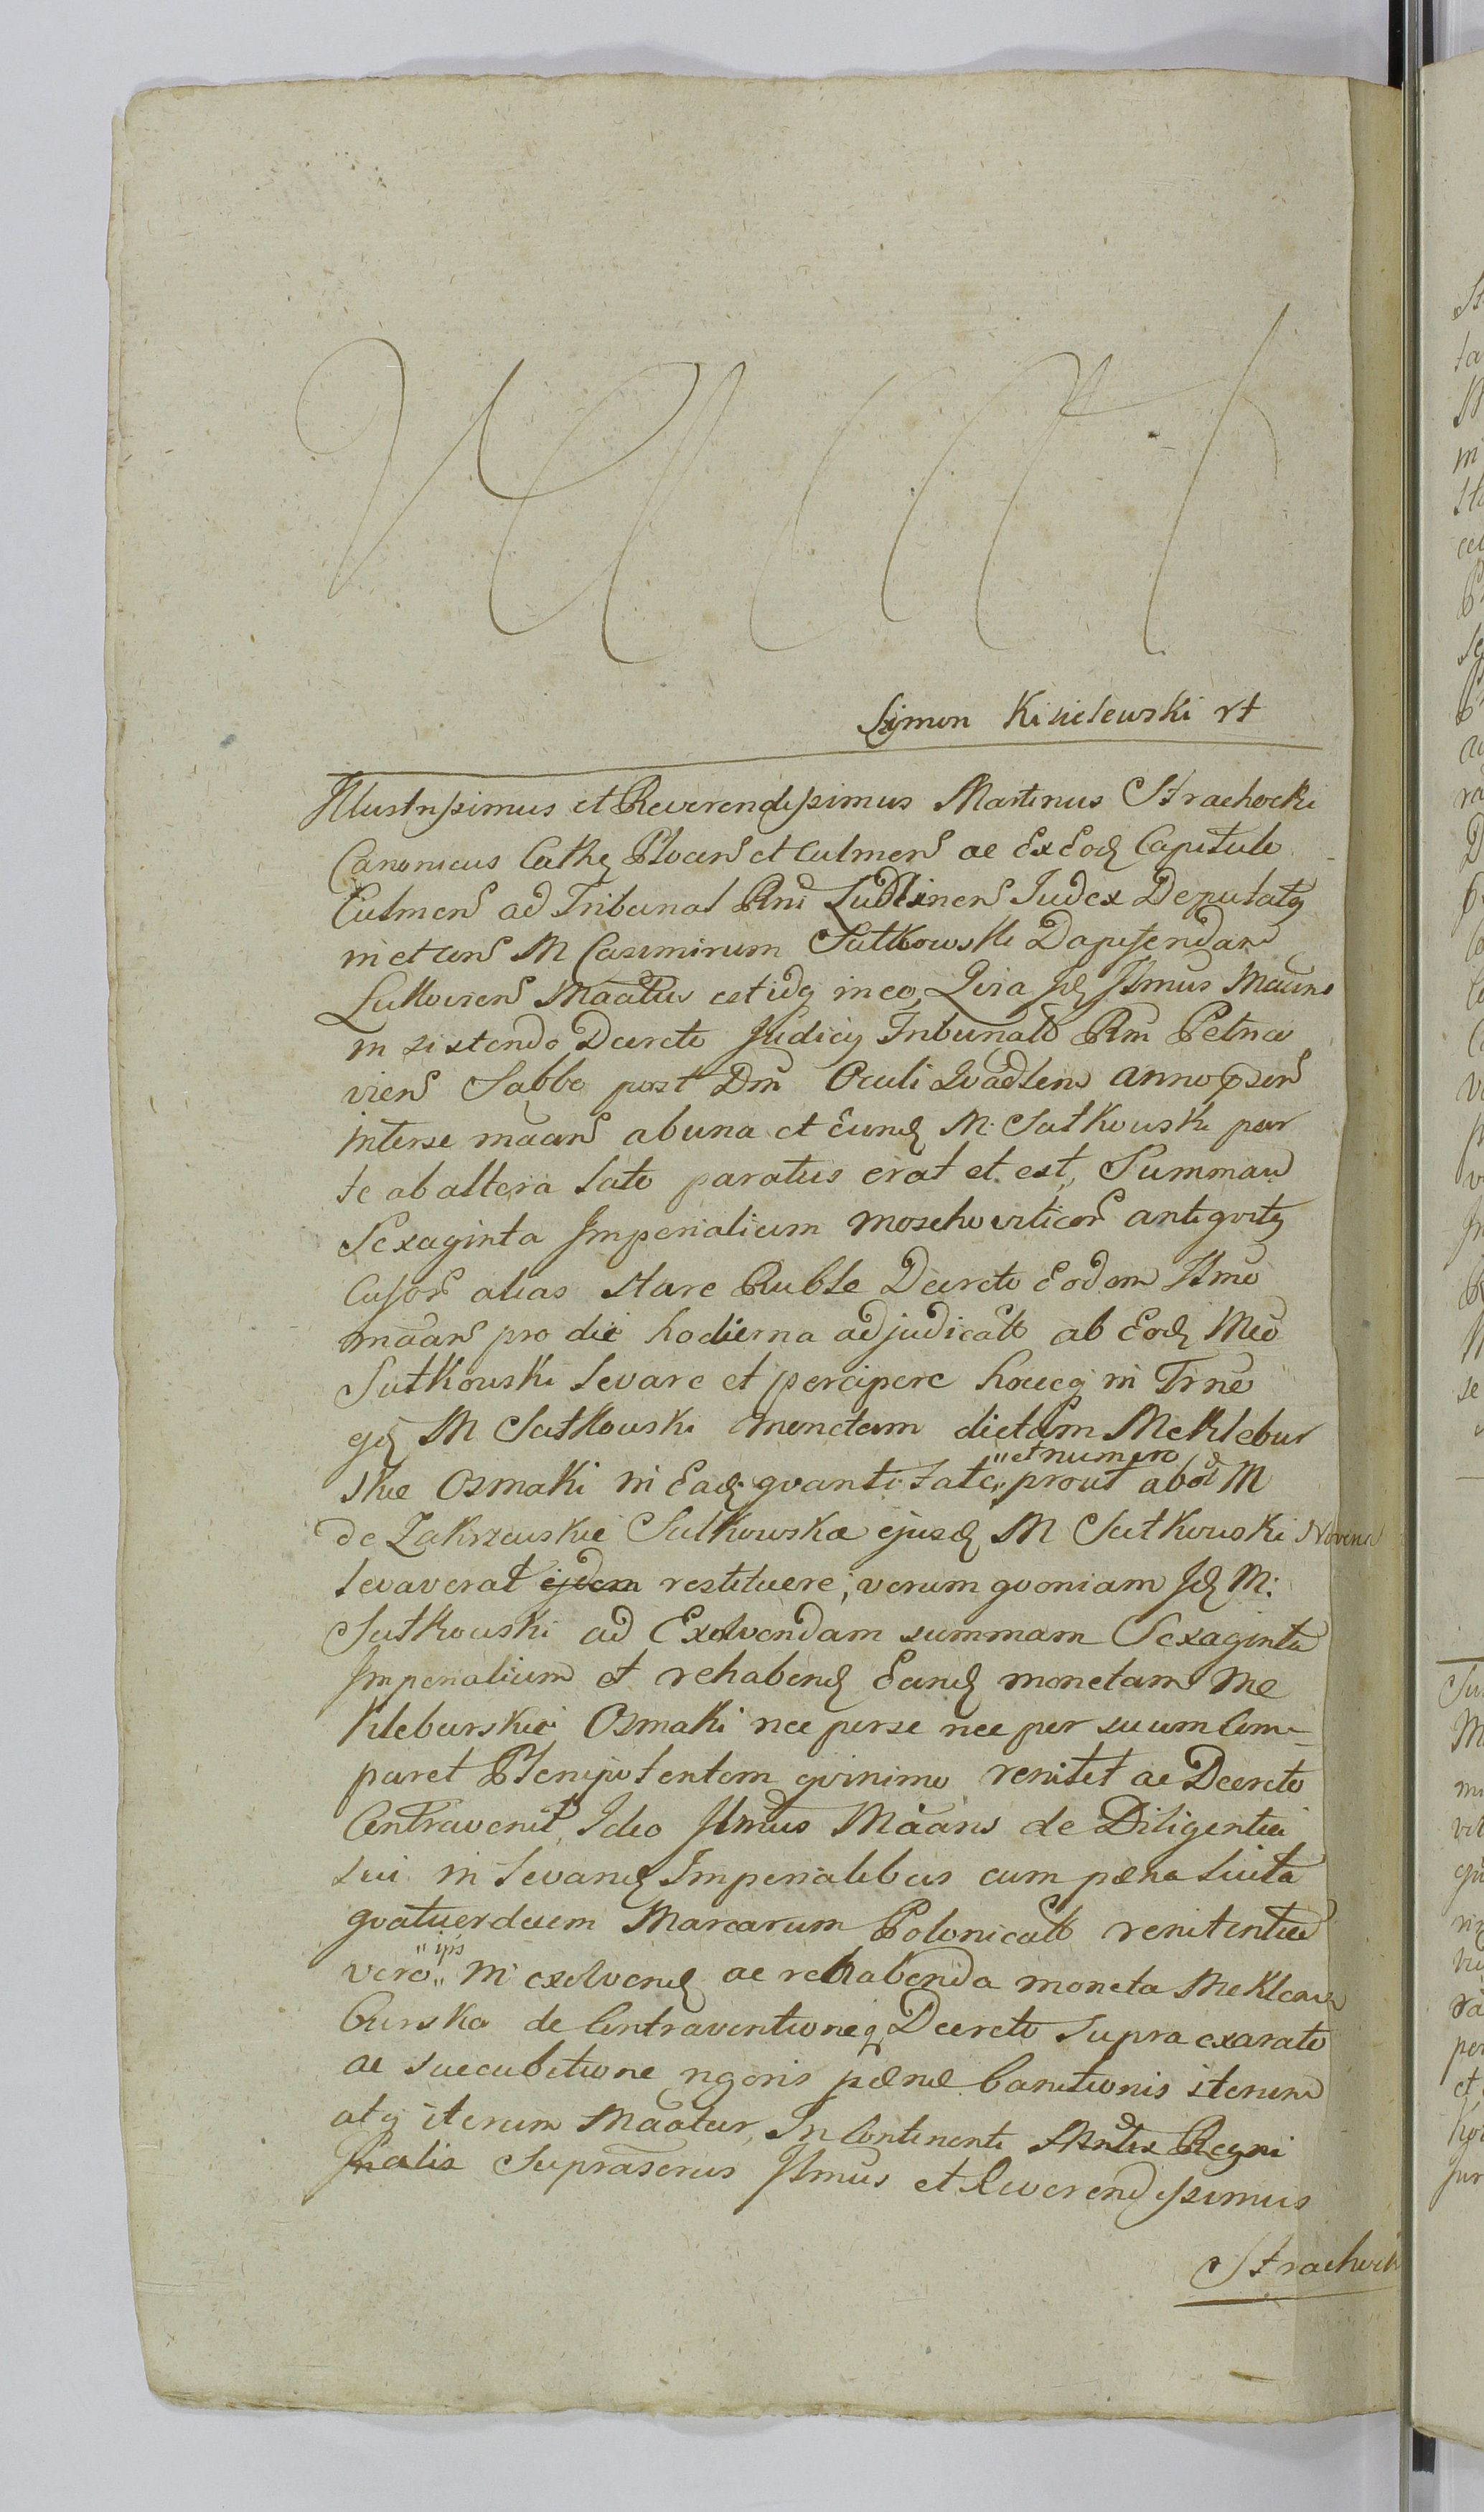 Szymon Kisielewski rt
Illustrissimus et Reverendissimus Martinus Strachocki
Canonicus Cathe Plocens et Culmens ac Ex Eod Capitulo
Culmens ad Tribunal Rni Lublinens Judex Deputatq
in et cons M Casimirum Sutkowski Dapiferidam
Lukoviens Maatus est idq in eo, Qvia Id Ilmus Maans
in sistendo Decreto Judicij Tribunalo Rni Petrico
viens Sabbo post Dm Oculi Qvadlem anno psens
inter se maans ab una et Eund M. Sutkowski par
te ab altera lato paratus erat et est, Summam
Sexaginta Imperialium Moschoviticor antiqvitq
Cusor alias stare Ruble Decreto Eodem Ilmo
maans pro die hodierna adjudicato ab Eod Mco
Sutkowski levare et percipere hocq in Trno
ejd M Sutkowski monetam dictam Meklebur
"et numero
skie Osmaki in Ead qvantitate,, prout ab od M
de Zakrzewskie Sutkowska ejusd M Sutkowski Noverca
levaverat ejdem restituere, verum qvoniam Id M:
Sutkowski ad Exolvendam summam Sexaginta
Imperialium et rehabend Eand monetam Me
kleburskie Osmaki nec per se nec per suum Com-
paret Plenipotentem qvinimo renitet ac Decreto
Contravenit, Ideo Ilmus Maans de Diligentia
sui in levand Imperialibus cum pæna luita
qvatuordecim Marcarum Polonicalo renitentia
"ips
vero,, in exolvend ac rehabenda moneta Meklem
burska de Contraventioneq Decreto supra exarato
ac succubitione rigoris pænæ banitionis iterum
atq iterum Maatur, In Continenti Mntix Regni
Gnalis Suprascrus Ilmus et Reverendissimus
Strachocki